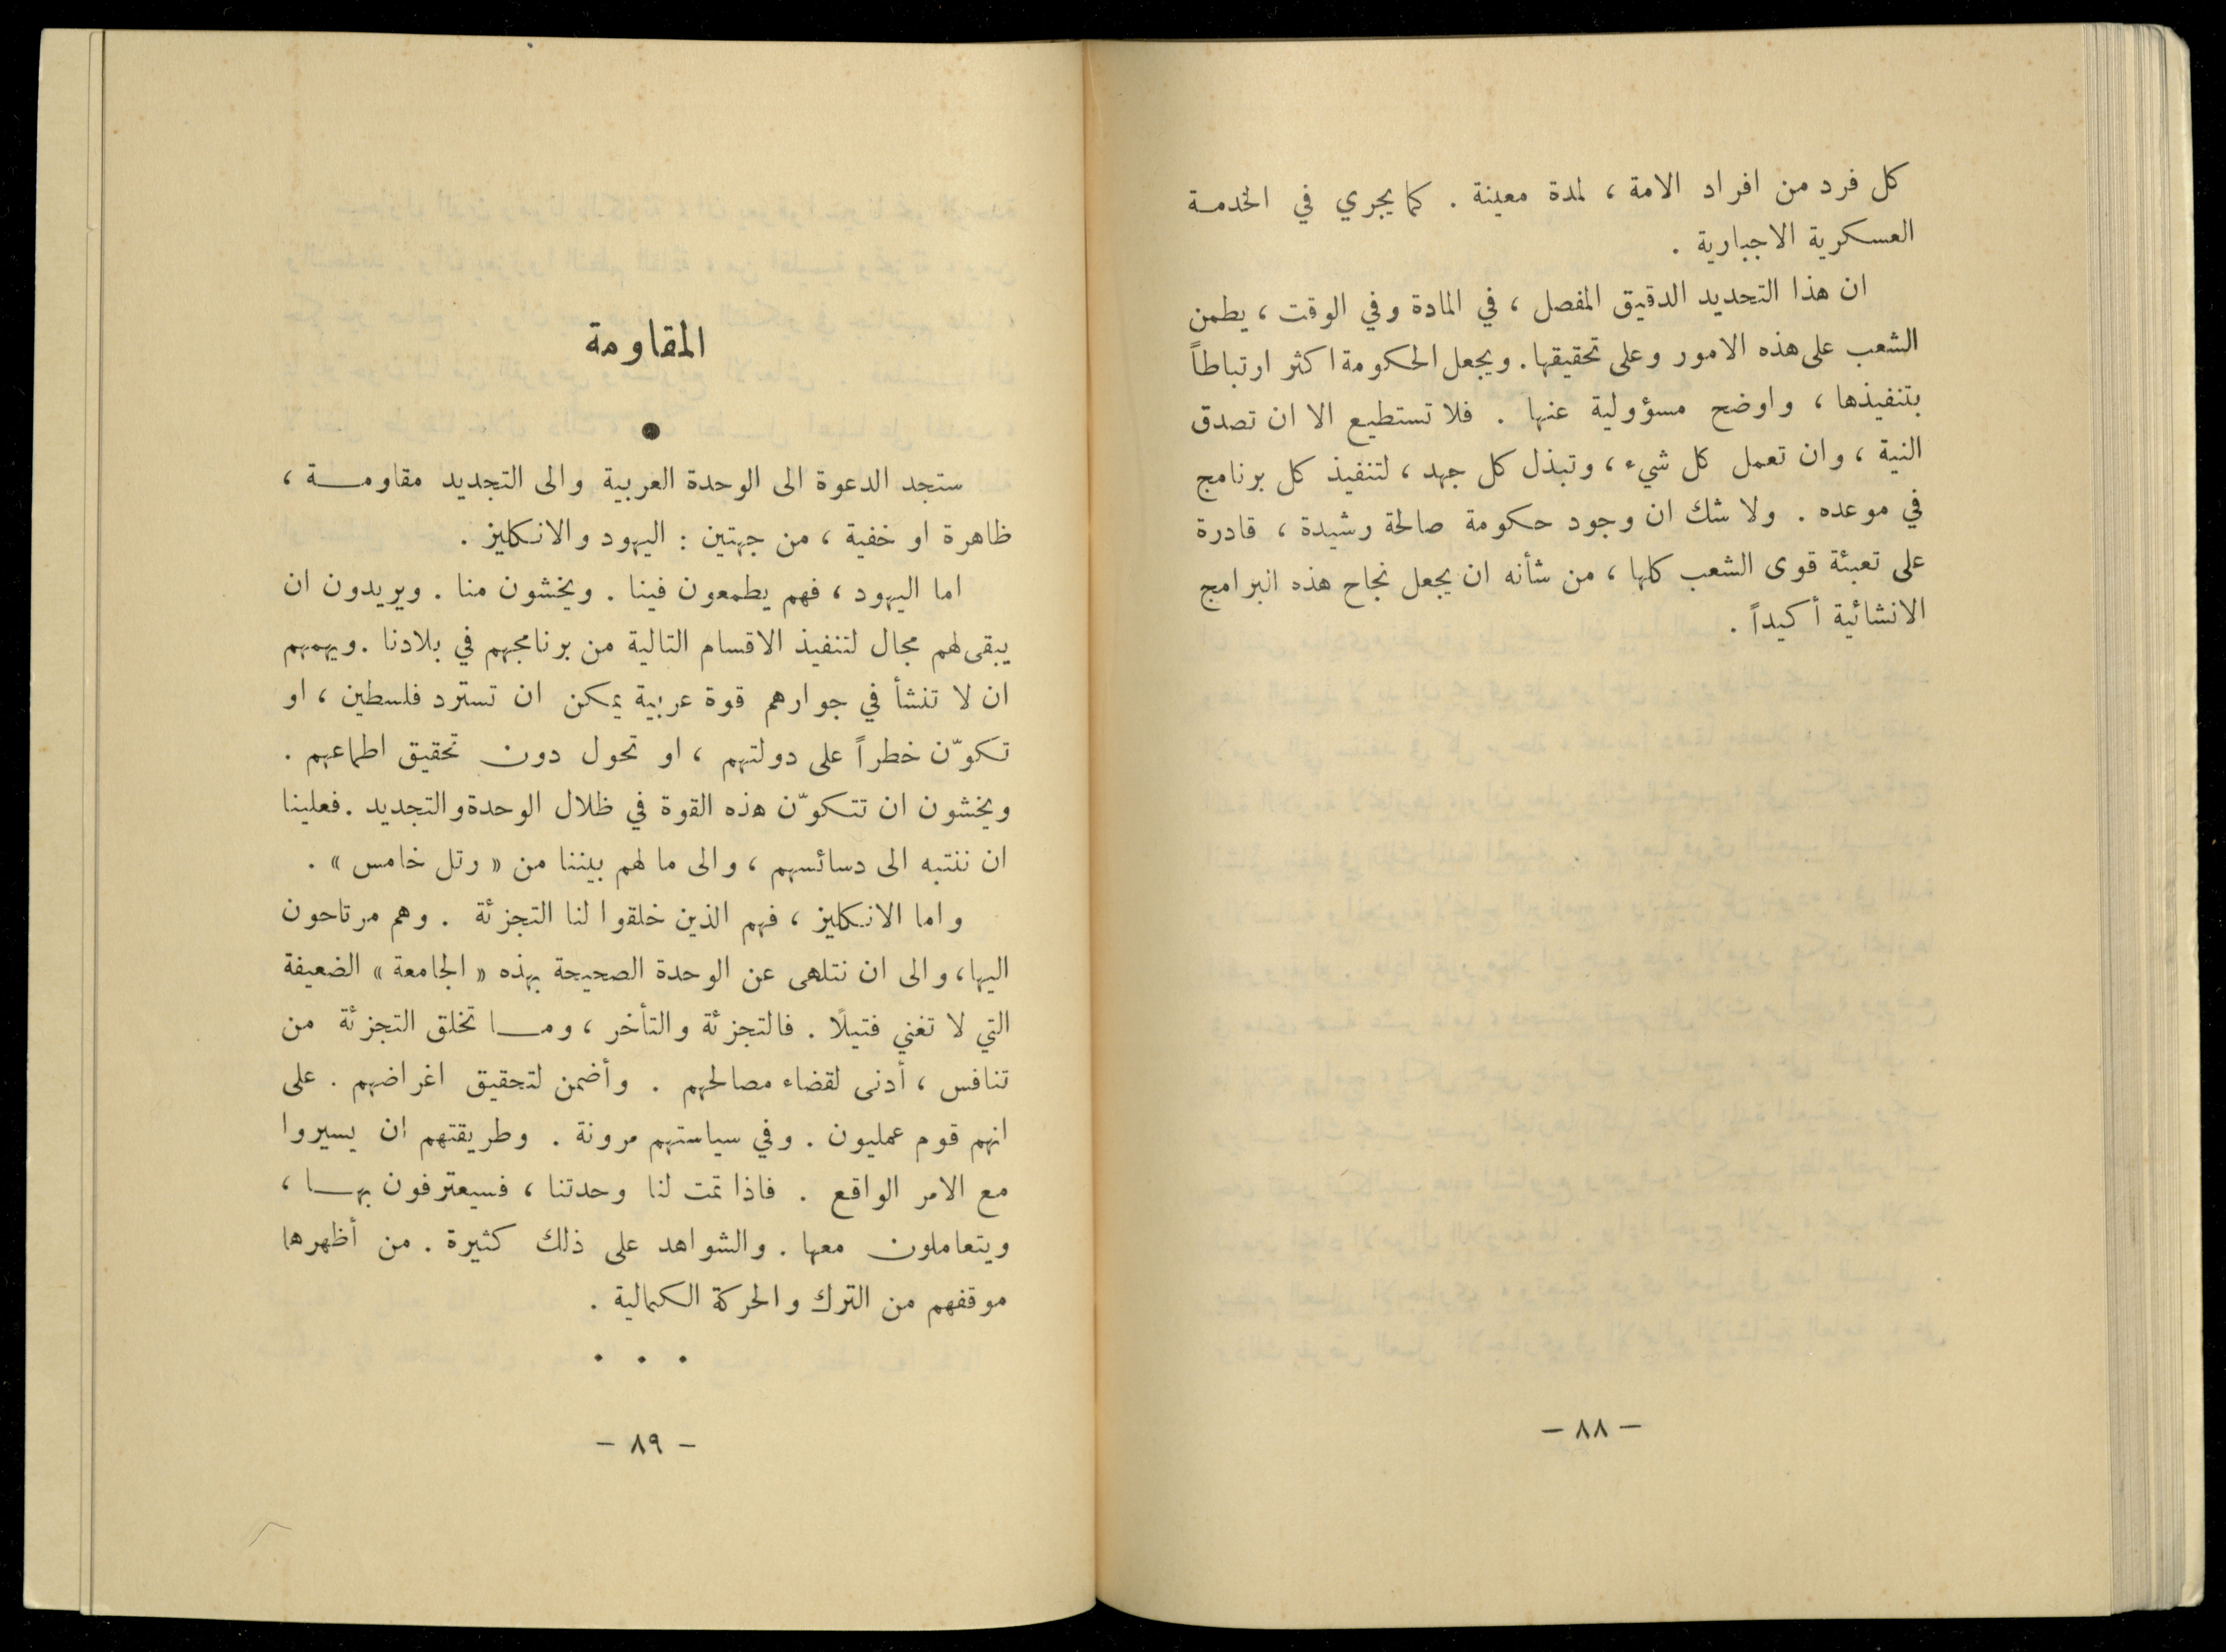 كل فرد من افراد الامة ، لمدة معينة . كما يجري في الخدمة
العسكرية الاجبارية .
ان هذا التحديد الدقيق المفصل ، في المادة وفي الوقت ، يطمن
الشعب على هذه الامور وعلى تحقيقها . ويجعل الحكومة اكثر ارتباطاً
بتنفيذها ، واوضح مسؤولية عنها . فلا تستطيع الا ان تصدق
النية ، وان تعمل كل شيء ، وتبذل كل جهد ، لتنفيذ كل برنامج
في موعده . ولا شك ان وجود حكومة صالحة رشيدة ، قادرة
على تعبئة قوى الشعب كلها ، من شأنه ان يجعل نجاح هذه البرامج
الانشائية أكيداً .
— ٨٨ —
المقاومة
●
ستجد الدعوة الى الوحدة العربية والى التجديد مقاومة ،
ظاهرة او خفية ، من جهتين : اليهود والانكليز .
اما اليهود ، فهم يطمعون فينا . ويخشون منا . ويريدون ان
يبقى لهم مجال لتنفيذ الاقسام التالية من برنامجهم في بلادنا . ويهمهم
ان لا تنشأ في جوارهم قوة عربية يمكن ان تسترد فلسطين ، او
تكوّن خطراً على دولتهم ، او تحول دون تحقيق اطماعهم .
ويخشون ان تتكوّن هذه القوة في ظلال الوحدة والتجديد . فعلينا
ان ننتبه الى دسائسهم ، والى ما لهم بيننا من « رتل خامس » .
واما الانكليز ، فهم الذين خلقوا لنا التجزئة . وهم مرتاحون
اليها ، والى ان نتلهى عن الوحدة الصحيحة بهذه « الجامعة » الضعيفة
التي لا تغني فتيلًا . فالتجزئة والتأخر ، وما تخلق التجزئة من
تنافس ، أدنى لقضاء مصالحهم . وأضمن لتحقيق اغراضهم . على
انهم قوم عمليون . وفي سياستهم مرونة . وطريقتهم ان يسيروا
مع الامر الواقع . فاذا تمت لنا وحدتنا ، فسيعترفون بها ،
ويتعاملون معها . والشواهد على ذلك كثيرة . من أظهرها
موقفهم من الترك والحركة الكمالية .
• • •
— ٨٩ —